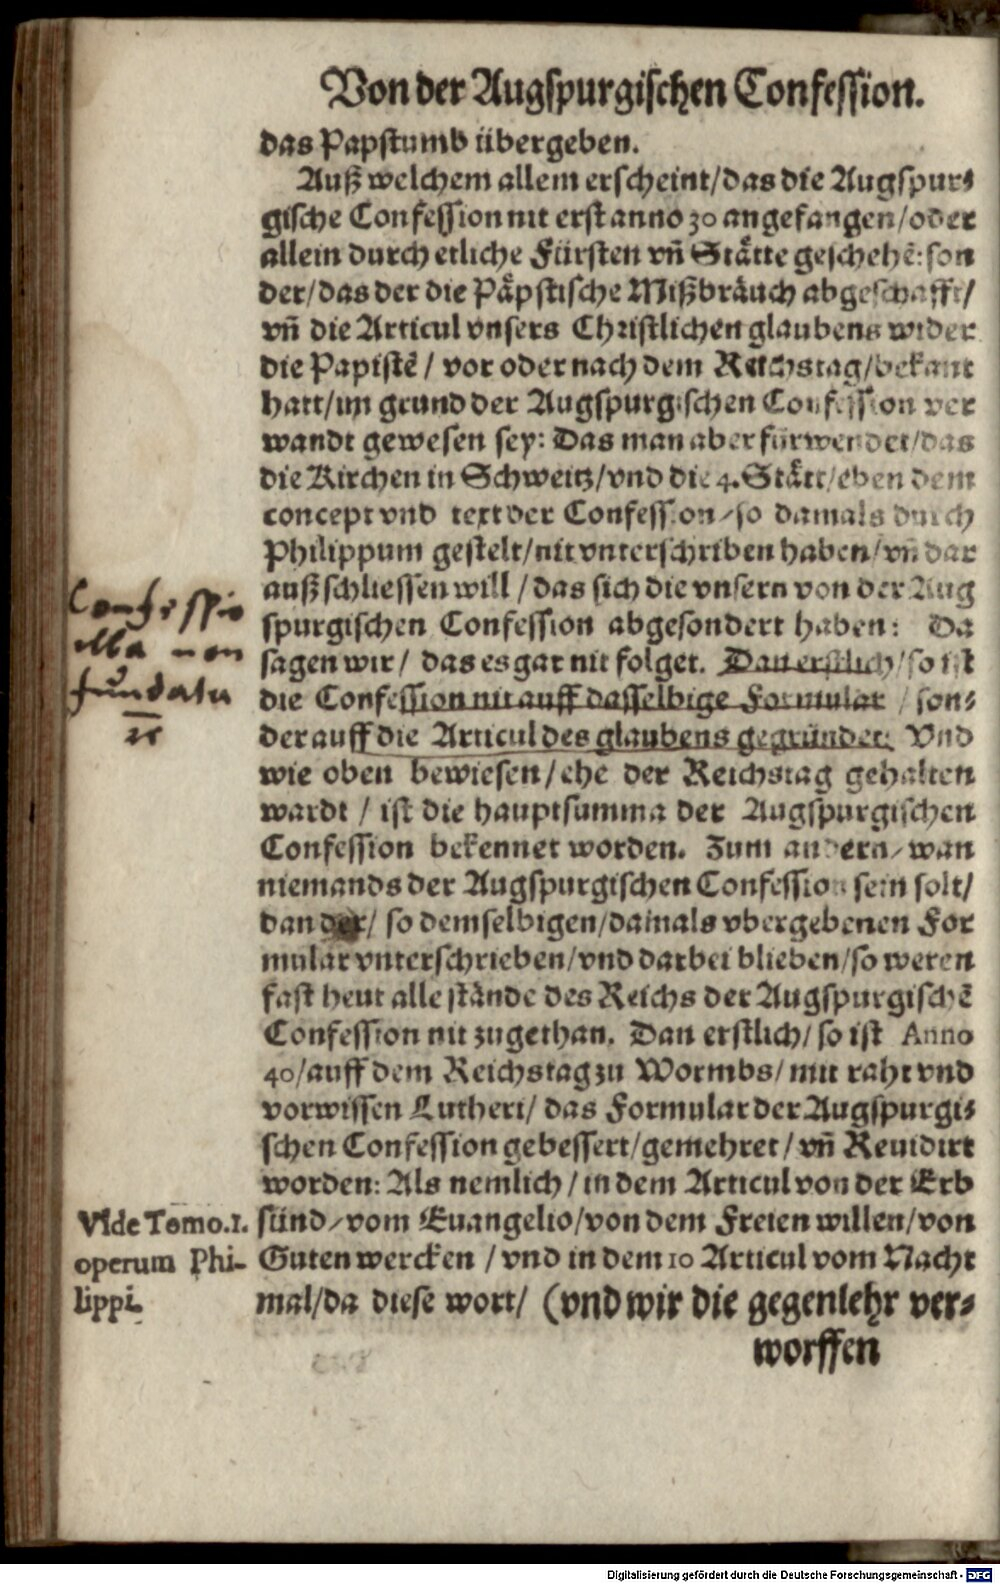 Von der Augspurgischen Confession.
das Papstumb übergeben.
Auß welchem allem erscheint/das die Augspur⸗
gische Confession nit erst anno 30 angefangen/oder
allein durch etliche Fürsten vñ Stätte geschehē: son
der/das der die Päpstische Mißbräuch abgeschafft/
vñ die Articul vnsers Christlichen glaubens wider
die Papistē / vor oder nach dem Reichstag/bekant
hatt/im grund der Augspurgischen Confession ver
wandt gewesen sey: Das man aber fürwendet/das
die Kirchen in Schweitz/vnd die 4. Stätt/eben dem
concept vnd text der Confession/so damals durch
Philippum gestelt/nit vnterschriben haben/vñ dar
auß schliessen will / das sich die vnsern von der Aug
spurgischen Confession abgesondert haben: Da
sagen wir/ das es gar nit folget. Dan erstlich/so ist
die Confession nit auff dasselbige Formular / son⸗
der auff die Articul des glaubens gegründet: Vnd
wie oben bewiesen/ehe der Reichstag gehalten
wardt / ist die hauptsumma der Augspurgischen
Confession bekennet worden. Zum andern/wan
niemands der Augspurgischen Confession sein solt/
dan der/ so demselbigen/damals vbergebenen For
mular vnterschrieben/vnd darbei blieben/so weren
fast heut alle stände des Reichs der Augspurgischē
Confession nit zugethan. Dan erstlich/so ist Anno
40/auff dem Reichstag zu Wormbs/mit raht vnd
vorwissen Lutheri/ das Formular der Augspurgi⸗
schen Confession gebessert/gemehret/vñ Reuidirt
worden: Als nemlich/in dem Articul von der Erb
sünd/vom Euangelio/von dem Freien willen/von
Guten wercken / vnd in dem 10 Articul vom Nacht
mal/da diese wort/ (vnd wir die gegenlehr ver⸗
worffen
Confessio
illa non
fundata
Vide Tomo.1.
operum Phi-
lippi.
Digitalisierung gefördert durch die Deutsche Forschungsgemeinschaft - DFG